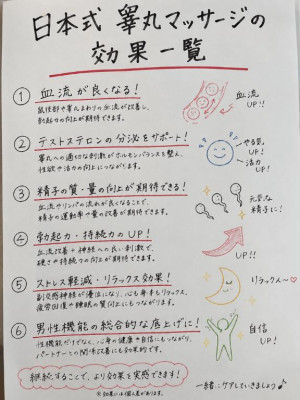 日本式 睾丸マッサージの
効果一覧
① 血流が良くなる!
鼠径部や睾丸まわりの血流が改善し、
勃起力の向上が期待できます。
血流
UP!!
② テストステロンの分泌をサポート!
睾丸への適切な刺激がホルモンバランスを整え、
性欲や活力の向上につながります。
やる気
UP!
活力
UP!
③ 精子の質・量の向上が期待できる!
血流やリンパの流れが良くなることで、
精子の運動率や量の改善が期待できます。
元気な
精子に!
④ 勃起力・持続力のUP!
血流改善+神経への良い刺激で、
硬さや持続力の向上が期待できます。
UP!!
⑤ ストレス軽減・リラックス効果!
副交感神経が優位になり、心も身体もリラックス。
疲労回復や睡眠の質向上にもつながります。
リラックス〜♡
⑥ 男性機能の総合的な底上げに!
性機能だけでなく、心身の健康や自信にもつながり、
パートナーとの関係改善にも効果的です。
自信
UP!
継続することで、より効果を実感できます!
※効果には個人差があります。
一緒にケアしていきましょう♪